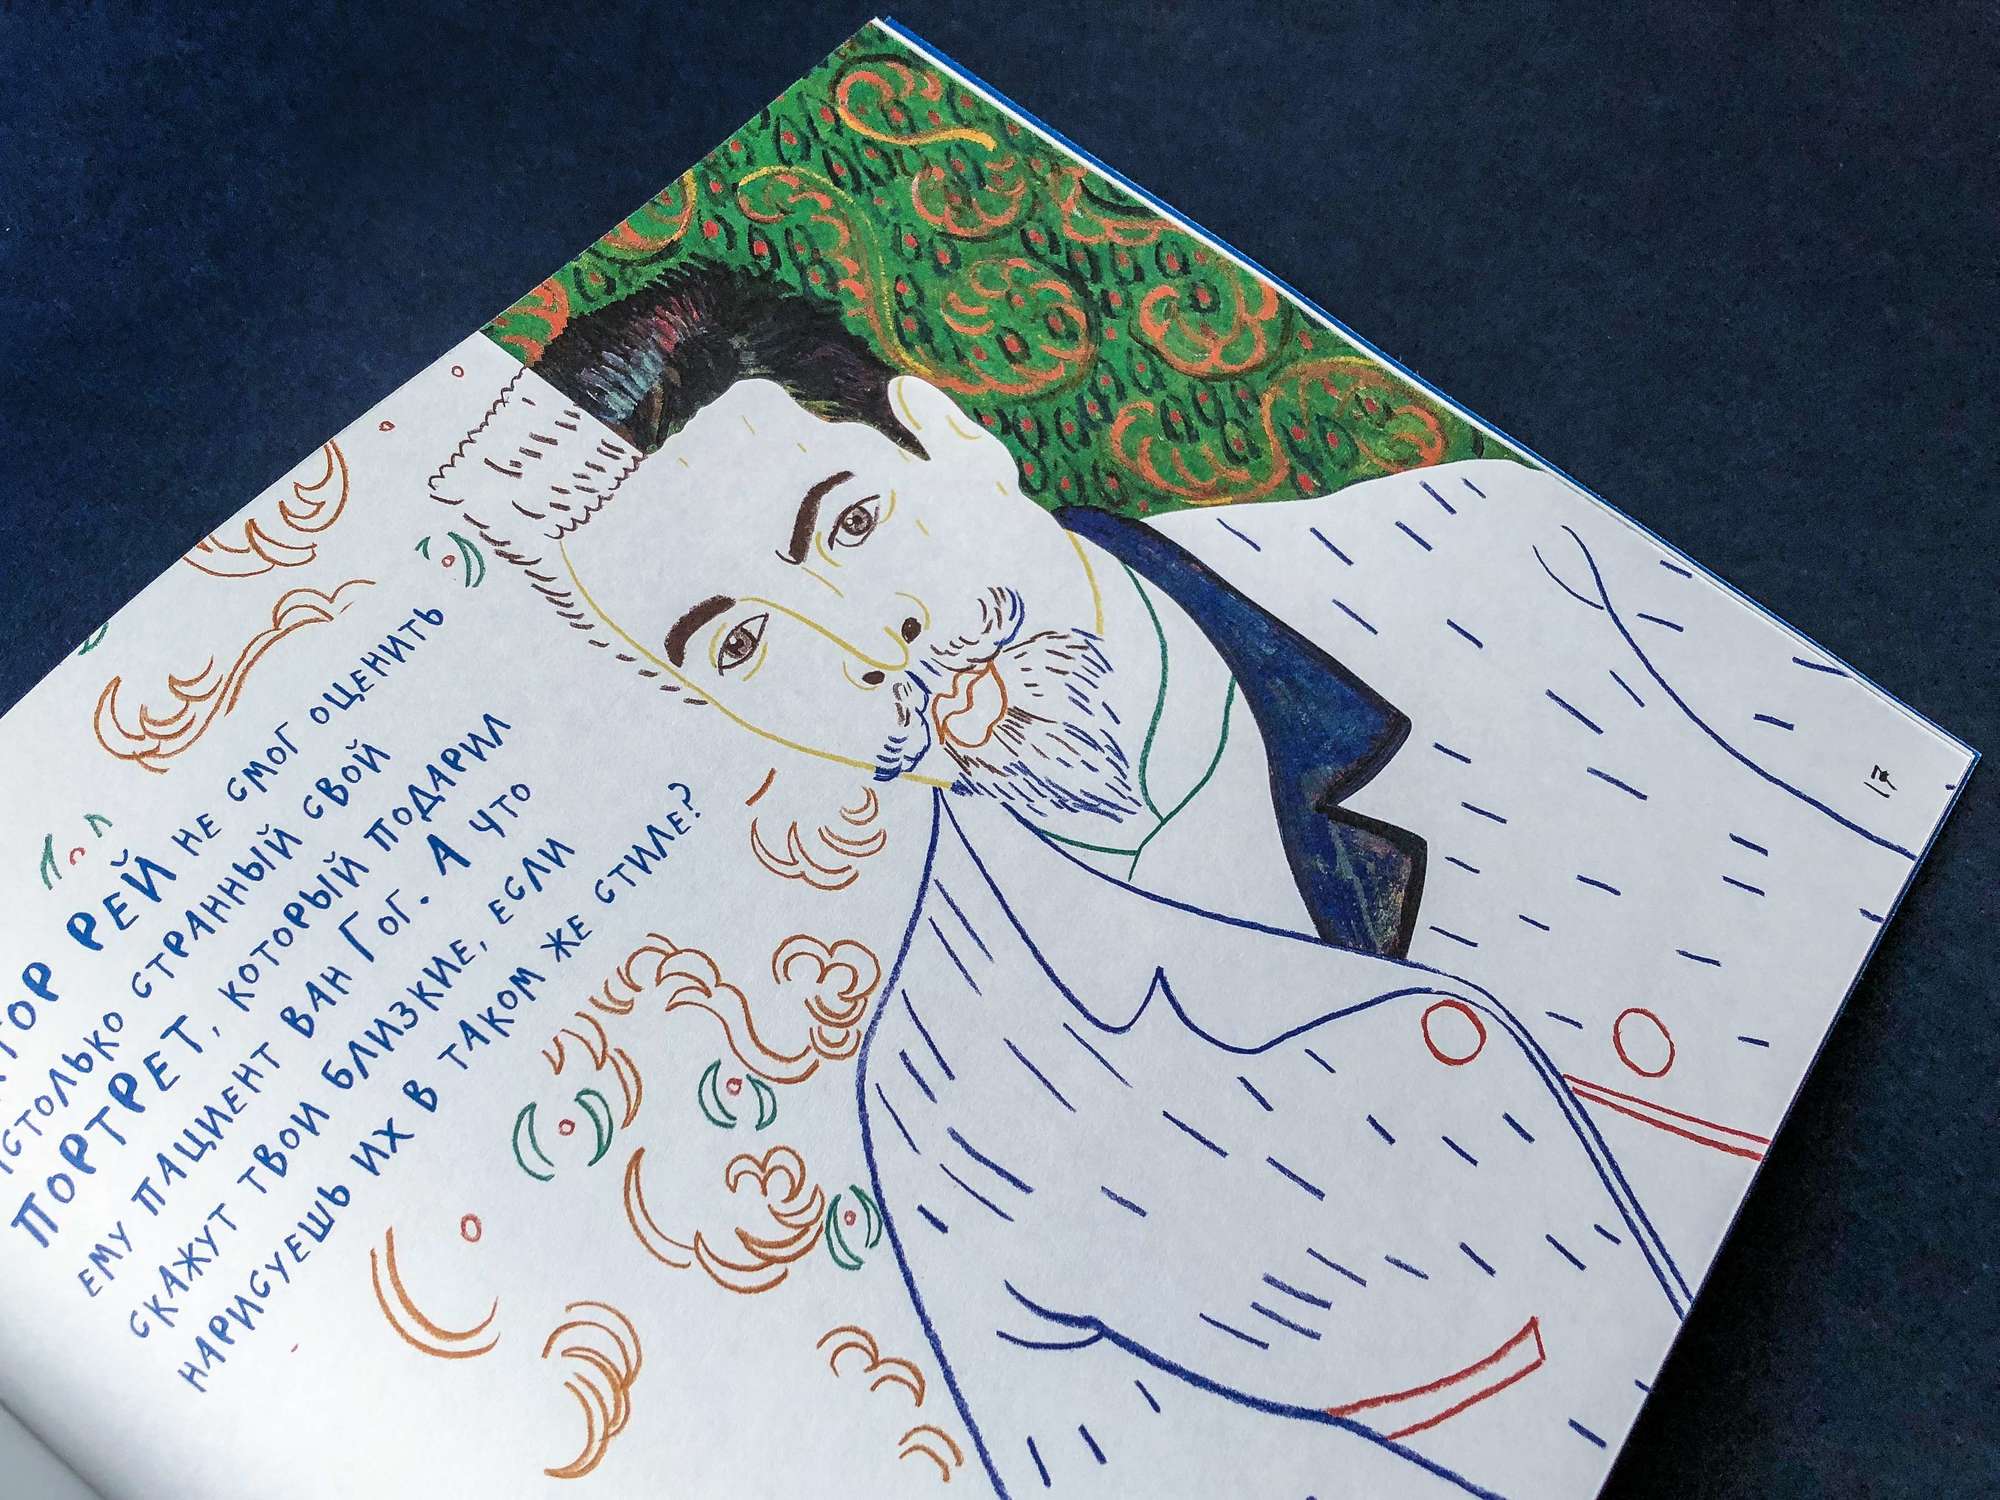 РЕЙ НЕ СМОГ ОЦЕНИТЬ
СТРАННЫЙ СВОЙ
ПОРТРЕТ, КОТОРЫЙ ПОДАРИЛ
ЕМУ ПАЦИЕНТ ВАН ГОГ. А ЧТО
СКАЖУТ ТВОИ БЛИЗКИЕ, ЕСЛИ
НАРИСУЕШЬ ИХ В ТАКОМ ЖЕ СТИЛЕ?
17